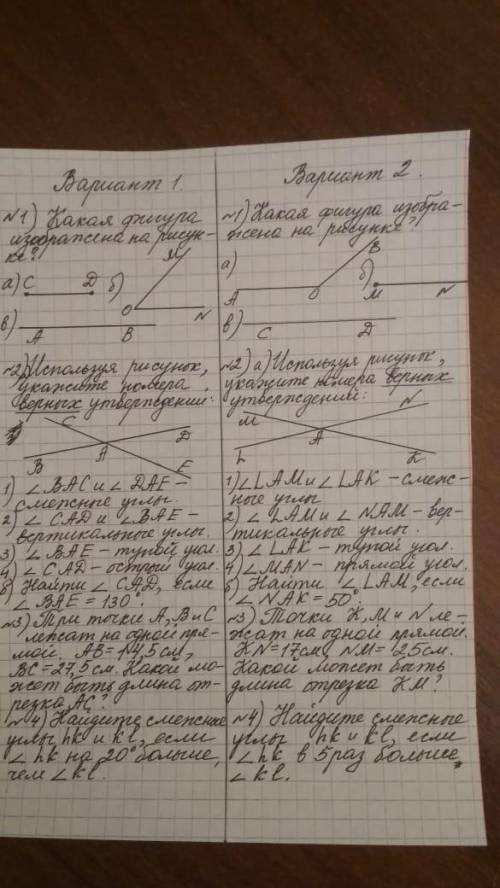 Вариант 1.
№1) Какая фигура
изображена на рисун-
ке?
M
а) C D б)
O N
в) A B
№2) Используя рисунок,
укажите номера
верных утверждений:
C
A D
B E
1) ∠BAC и ∠DAE –
смежные углы.
2) ∠CAD и ∠BAE –
вертикальные углы.
3) ∠BAE – тупой угол.
4) ∠CAD – острый угол.
б) Найти ∠CAD, если
∠BAE = 130°.
№3) Три точки A, B и C
лежат на одной пря-
мой. AB = 14,5 см,
BC = 27,5 см. Какой мо-
жет быть длина от-
резка AC?
№4) Найдите смежные
углы hk и kl, если
∠hk на 20° больше,
чем ∠kl.
Вариант 2.
№1) Какая фигура изобра-
жена на рисунке?
B
а) б)
A O M N
в)
C D
№2) а) Используя рисунок,
укажите номера верных
утверждений:
M N
A
L K
1) ∠LAM и ∠LAK – смеж-
ные углы
2) ∠LAM и ∠NAM – вер-
тикальные углы.
3) ∠LAK – тупой угол.
4) ∠MAN – прямой угол.
б) Найти ∠LAM, если
∠NAK = 50°
№3) Точки K, M и N ле-
жат на одной прямой.
KN = 17 см, NM = 25 см.
Какой может быть
длина отрезка KM?
№4) Найдите смежные
углы hk и kl, если
∠hk в 5 раз больше
∠kl.